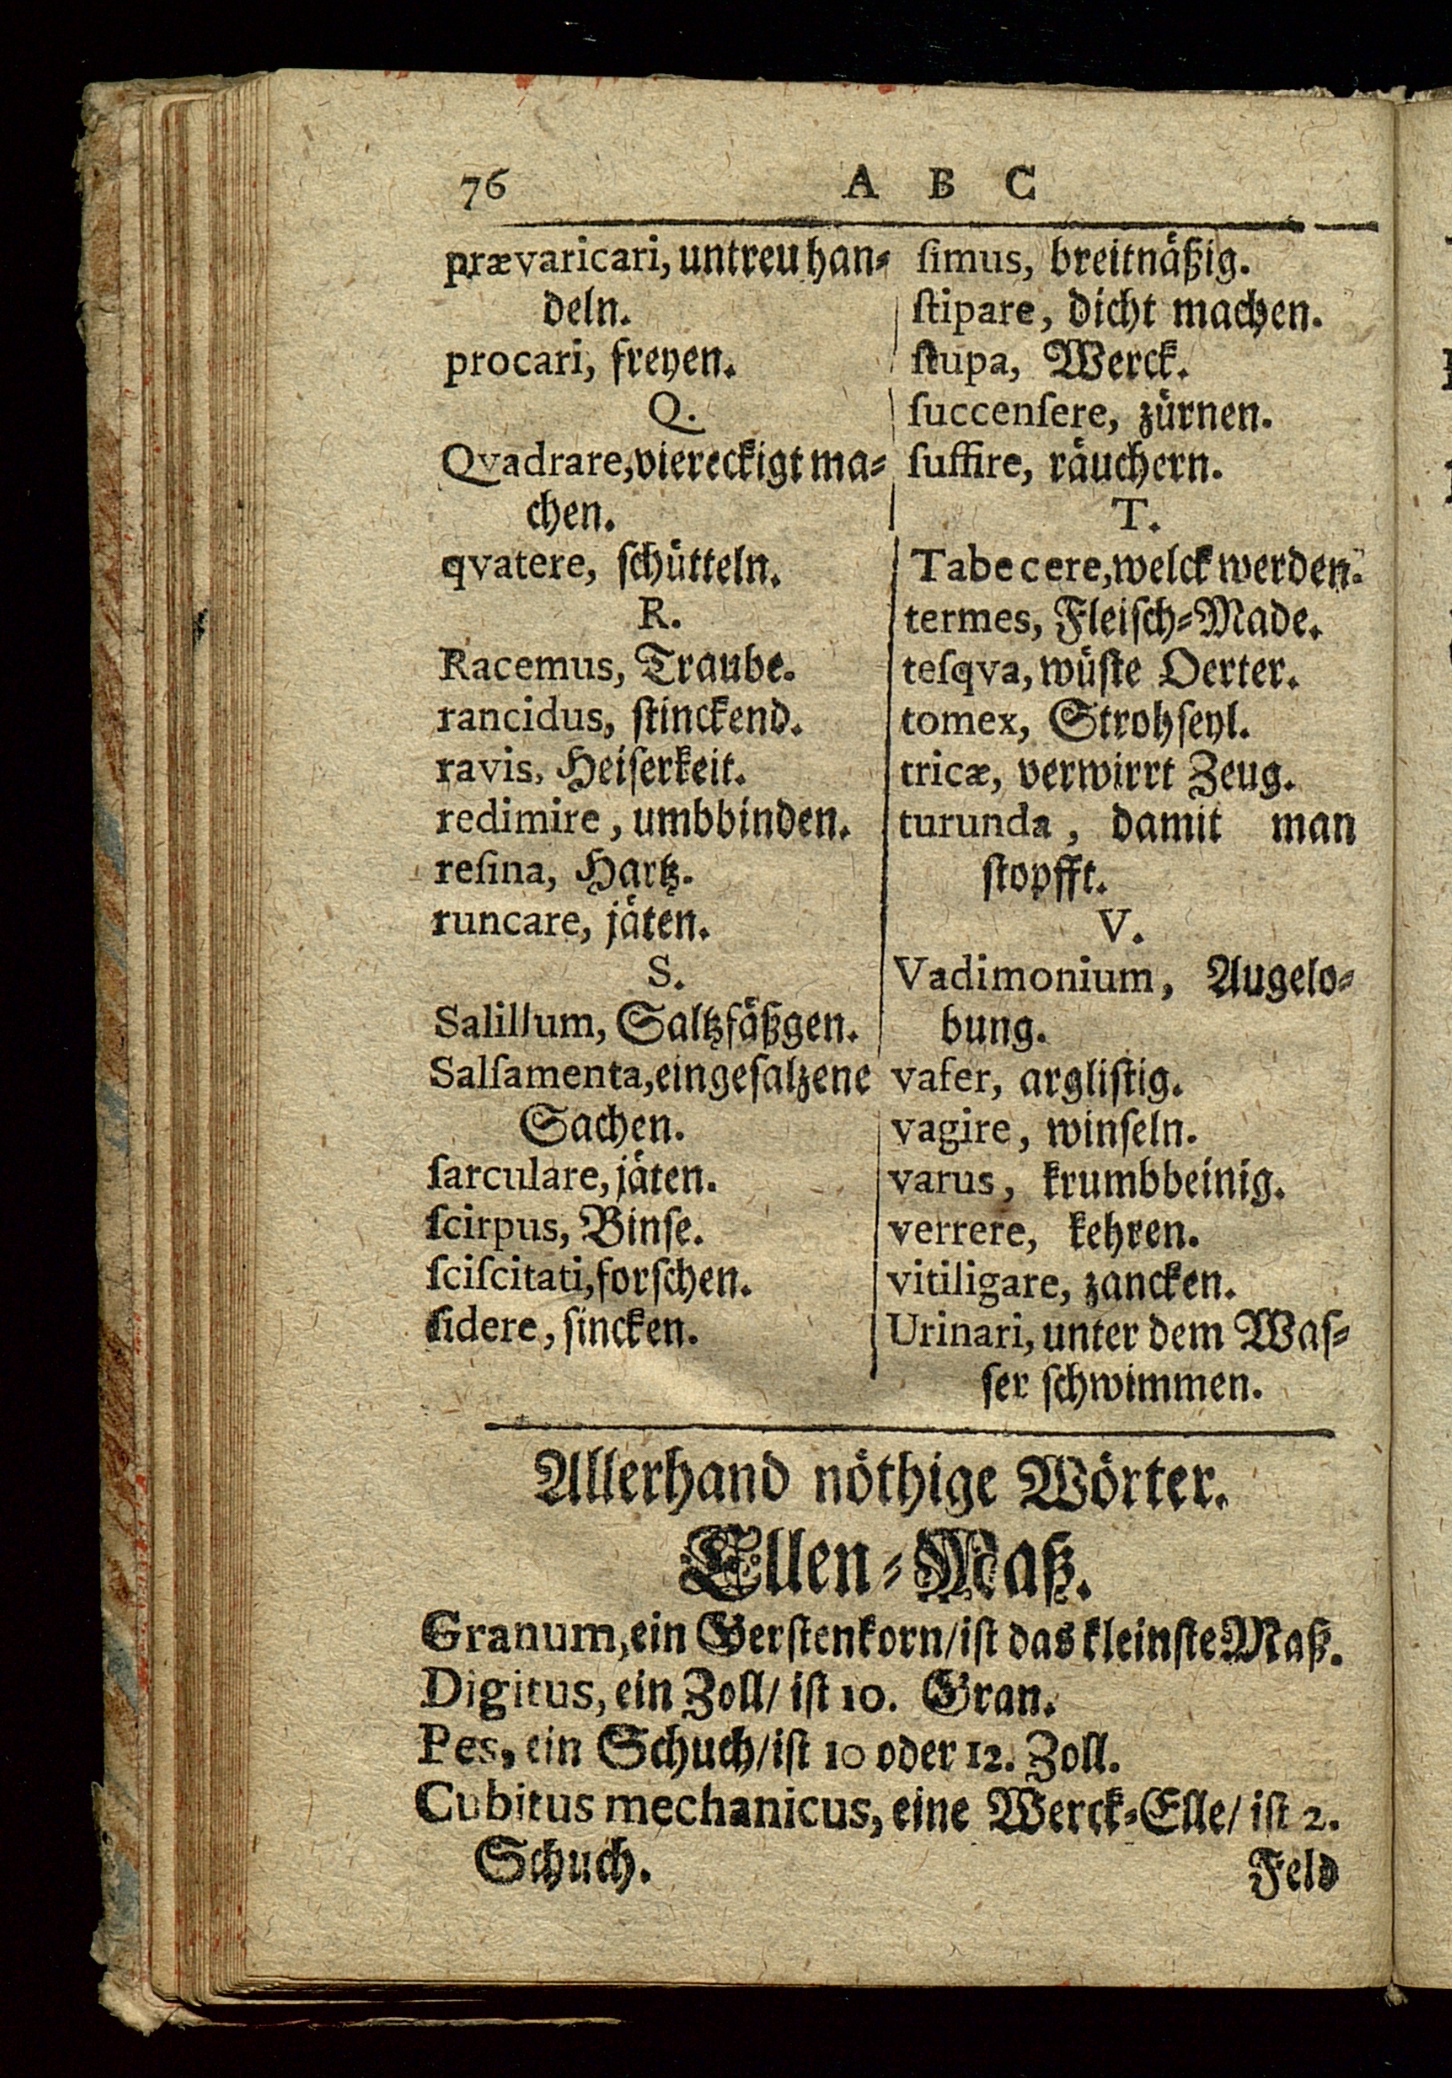 76 A B C
prævaricari, untreu han⸗
deln.
procari, freyen.
Q.
Qvadrare, viereckigt ma⸗
chen.
qvatere, ſchütteln.
R.
Racemus, Traube.
rancidus, ſtinckend.
ravis, Heiſerkeit.
redimire, umbbinden.
reſina, Hartz.
runcare, jäten.
S.
Salillum, Saltzfäßgen.
Salſamenta, eingeſalzene
Sachen.
ſarculare, jäten.
ſcirpus, Binſe.
ſciſcitati, forſchen.
ſidere, ſincken.
ſimus, breitnäßig.
ſtipare, dicht machen.
ſtupa, Werck.
ſuccenſere, zürnen.
ſuffire, räuchern.
T.
Tabecere, welck werden.
termes, Fleiſch⸗Made.
teſqva, wüſte Oerter.
tomex, Strohſeyl.
tricæ, verwirrt Zeug.
turunda, damit man
ſtopfft.
V.
Vadimonium, Augelo⸗
bung.
vafer, argliſtig.
vagire, winſeln.
varus, krumbbeinig.
verrere, kehren.
vitiligare, zancken.
Urinari, unter dem Waſ⸗
ſer ſchwimmen.
Allerhand nöthige Wörter.
Ellen⸗Maß.
Granum, ein Gerſtenkorn/ iſt das kleinſte Maß.
Digitus, ein Zoll/ iſt 10. Gran.
Pes, ein Schuch/ iſt 10 oder 12. Zoll.
Cubitus mechanicus, eine Werck⸗Elle/ iſt 2.
Schuch.
Feld